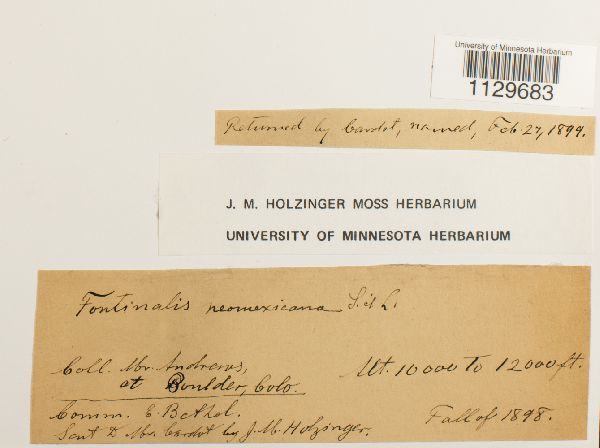 University of Minnesota Herbarium
1129683
Returned by Cardot, named, Feb. 27, 1899.
J. M. HOLZINGER MOSS HERBARIUM
UNIVERSITY OF MINNESOTA HERBARIUM
Fontinalis neomexicana S. & L.
Coll. Mr. Andrews,
at Boulder, Colo.
Alt. 10 000 to 12 000 ft.
Comm. E. Bethel.
Fall of 1898.
Sent to Mr. Cardot by J. M. Holzinger.